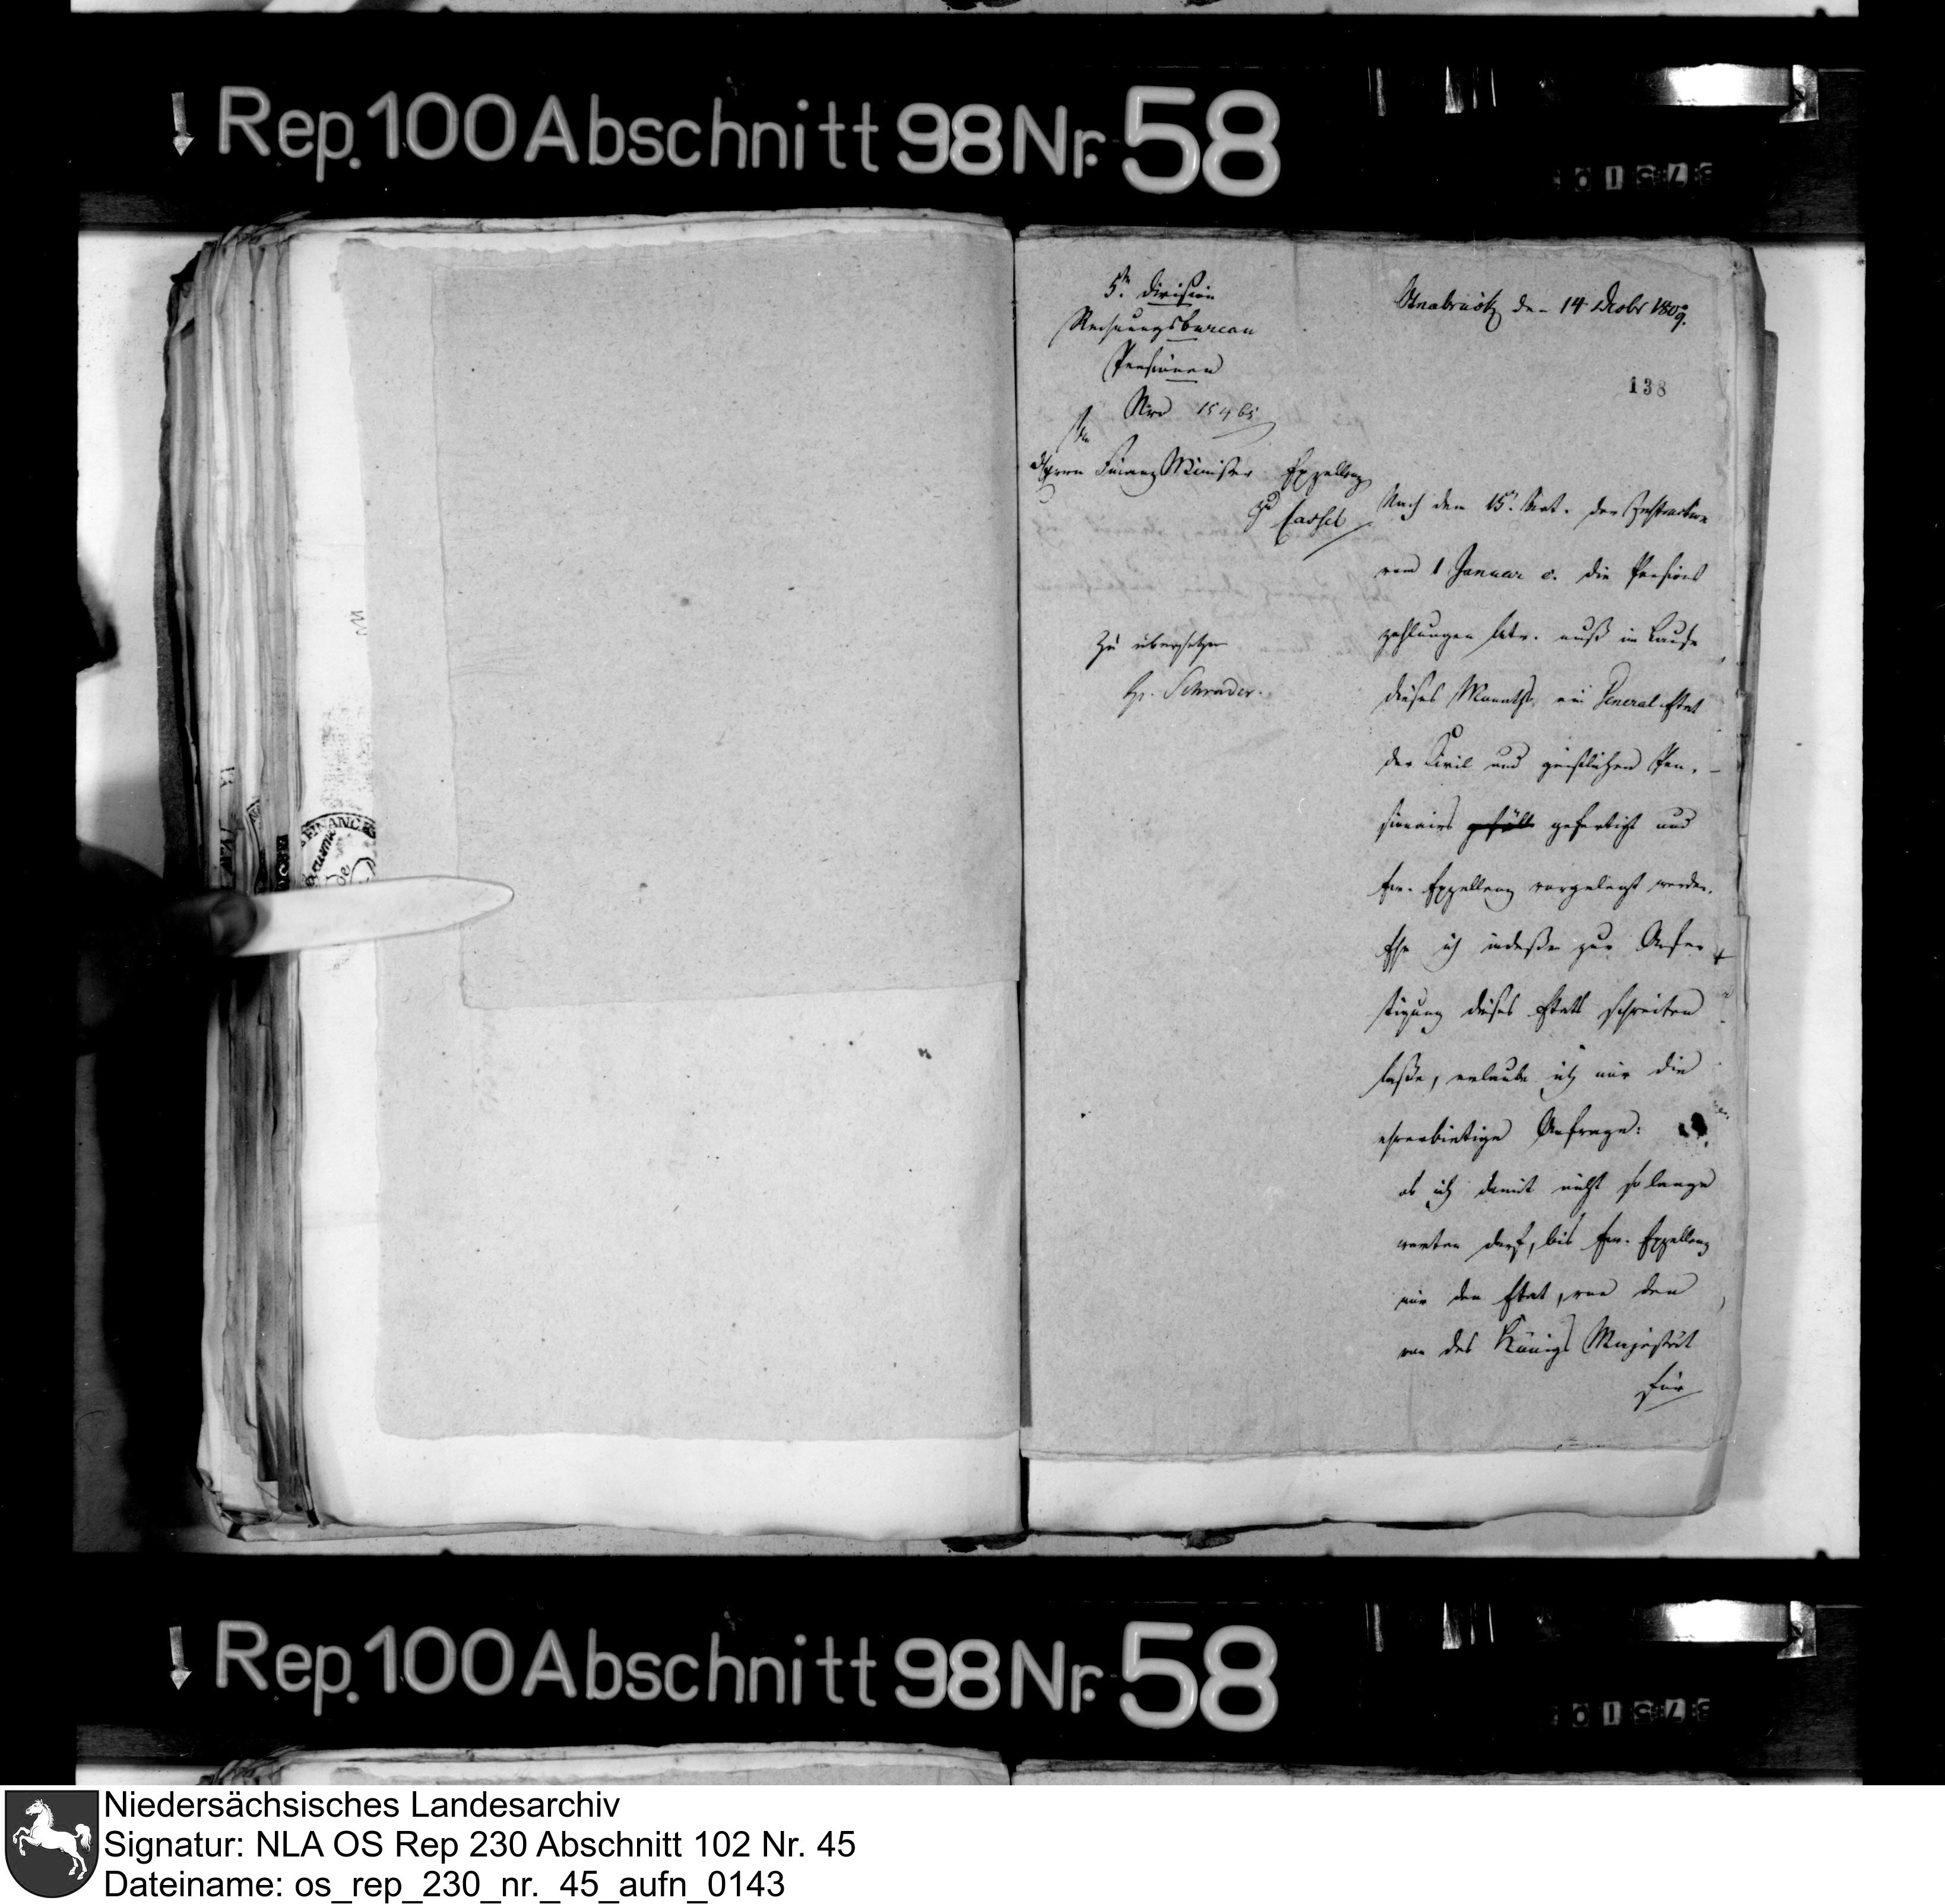 Rep. 100 Abschnitt 98 Nr. 58
5te Division
Rechnungsbureau
Pensionen
Nro 15465
An
Herrn Finanz Minister Exzellenz
zu Cassel
Zu übersetzen
H. Schrader.
Osnabrück den 14 Xbr 1809.
138
Nach dem 15t. Art. der Instruction
vom 1 Januar c. die Pensions
zahlungen betr. muß im Laufe
dieses Monaths ein General-Etat
der Civil und geistlichen Pen-
sionairs gefertigt und
Ew. Exzellenz vorgelegt werden.
Ehe ich indeßen zur Anfer
tigung dieses Etats schreiten
laße, erlaube ich mir die
ehrerbietige Anfrage:
ob ich damit nicht so lange
warten darf, bis Ew. Exzellenz
mir den Etat, von den
von des Königs Majestät
für
FINANC
Rep. 100 Abschnitt 98 Nr. 58
Niedersächsisches Landesarchiv
Signatur: NLA OS Rep 230 Abschnitt 102 Nr. 45
Dateiname: os_rep_230_nr._45_aufn_0143